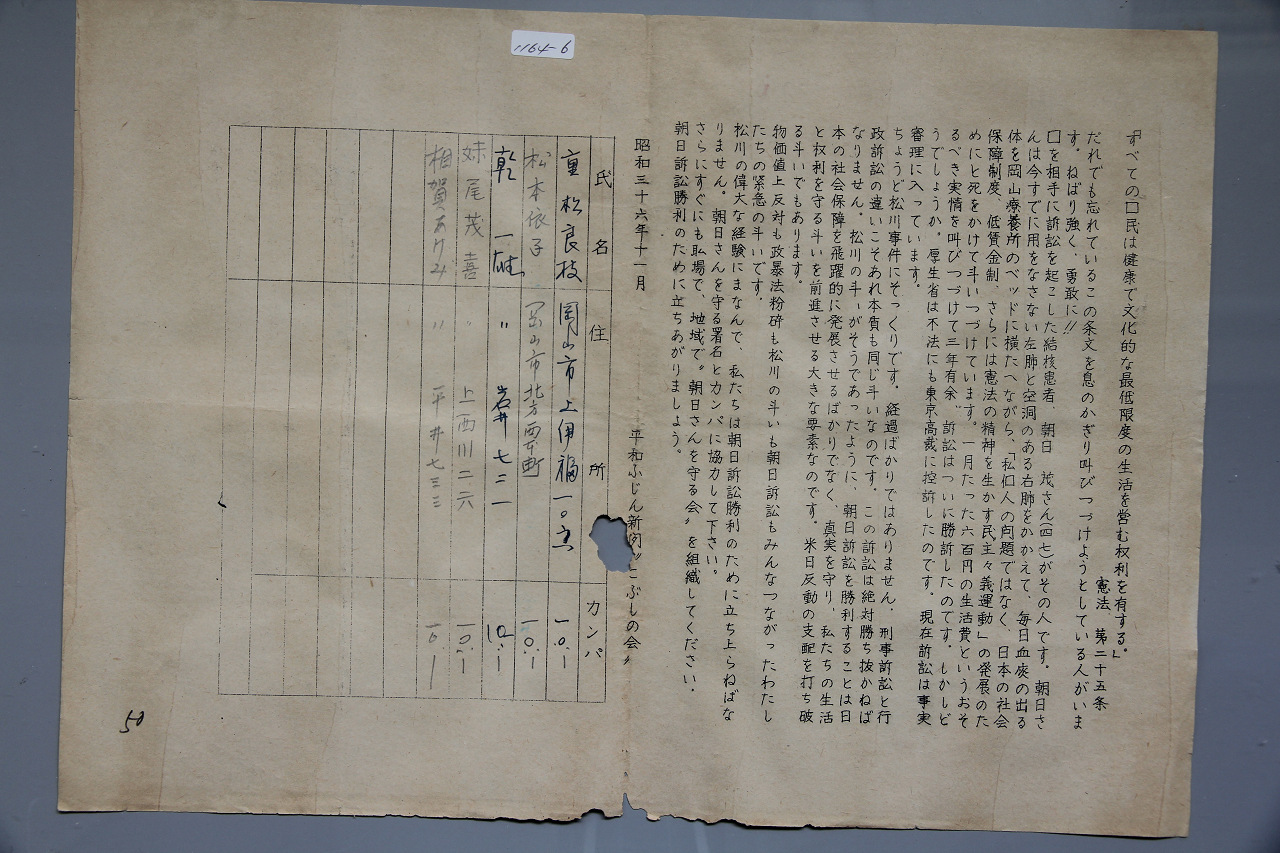 1164-6
「すべての囗民は健康で文化的な最低限度の生活を営む权利を有する。」
憲法、第二十五条
だれでも忘れているこの条文を息のかぎり叫びつづけようとしている人がいま
す。ねばり強く、勇敢に!!
囗を相手に訴訟を起こした結核患者、朝日 茂さん(四七)がその人です。朝日さ
んは今すでに用をなさない左肺と空洞のある右肺をかかえて、毎日血痰の出る
体を岡山療養所のベッドに横たへながら、「私個人の問題ではなく、日本の社会
保障制度、低賃金制、さらには憲法の精神を生かす民主々義運動」の発展のた
めにと死をかけて斗いつづけています。一月たった六百円の生活費というおそ
るべき実情を叫びつづけて三年有余、訴訟はついに勝訴したのです。しかしど
うでしょうか。厚生省は不法にも東京高裁に控訴したのです。現在訴訟は事実
審理に入っています。
ちょうど松川事件にそっくりです。経過ばかりではありません。刑事訴訟と行
政訴訟の違いこそあれ本質も同じ斗いなのです。この訴訟は絶対勝ち抜かねば
なりません。松川の斗いがそうであったように、朝日訴訟を勝利することは日
本の社会保障を飛躍的に発展させるばかりでなく、真実を守り、私たちの生活
と权利を守る斗いを前進させる大きな要素なのです。米日反動の支配を打ち破
る斗いでもあります。
物価値上反対も政暴法粉砕も松川の斗いも朝日訴訟もみんなつながったわたし
たちの緊急の斗いです。
松川の偉大な経験にまなんで、私たちは朝日訴訟勝利のために立ち上らねばな
りません。朝日さんを守る署名とカンパに協力して下さい。
さらにすぐにも职場で、地域で〝朝日さんを守る会〟を組織してください。
朝日訴訟勝利のために立ちあがりましょう。
昭和三十六年十一月
平和ふじん新聞〝こぶしの会〟
氏名 住所 カンパ
重松良枝 岡山市上伊福一〇 一〇.ー
松本依子 岡山市北方西本町 一〇.ー
乾一雄 〃 岩井七三二 10.ー
妹尾茂喜 〃 上西川二六 一〇.ー
相賀あけみ 〃 平井七三三 一〇.ー
50